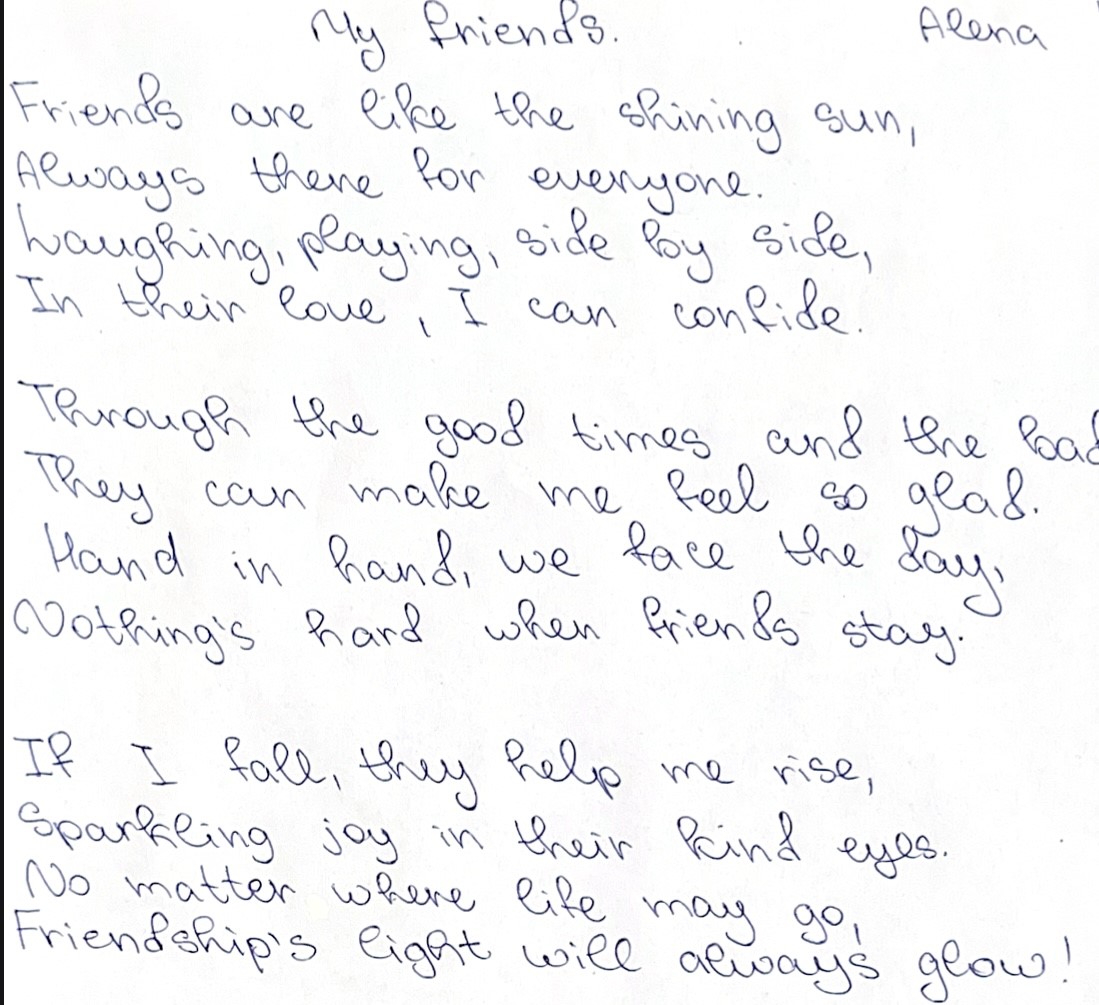 My friends. Alena
Friends are like the shining sun,
Always there for everyone.
Laughing, playing, side by side,
In their love, I can confide.
Through the good times and the bad
They can make me feel so glad.
Hand in hand, we face the day,
Nothing's hard when friends stay.
If I fall, they help me rise,
Sparkling joy in their kind eyes.
No matter where life may go,
Friendship's light will always glow!